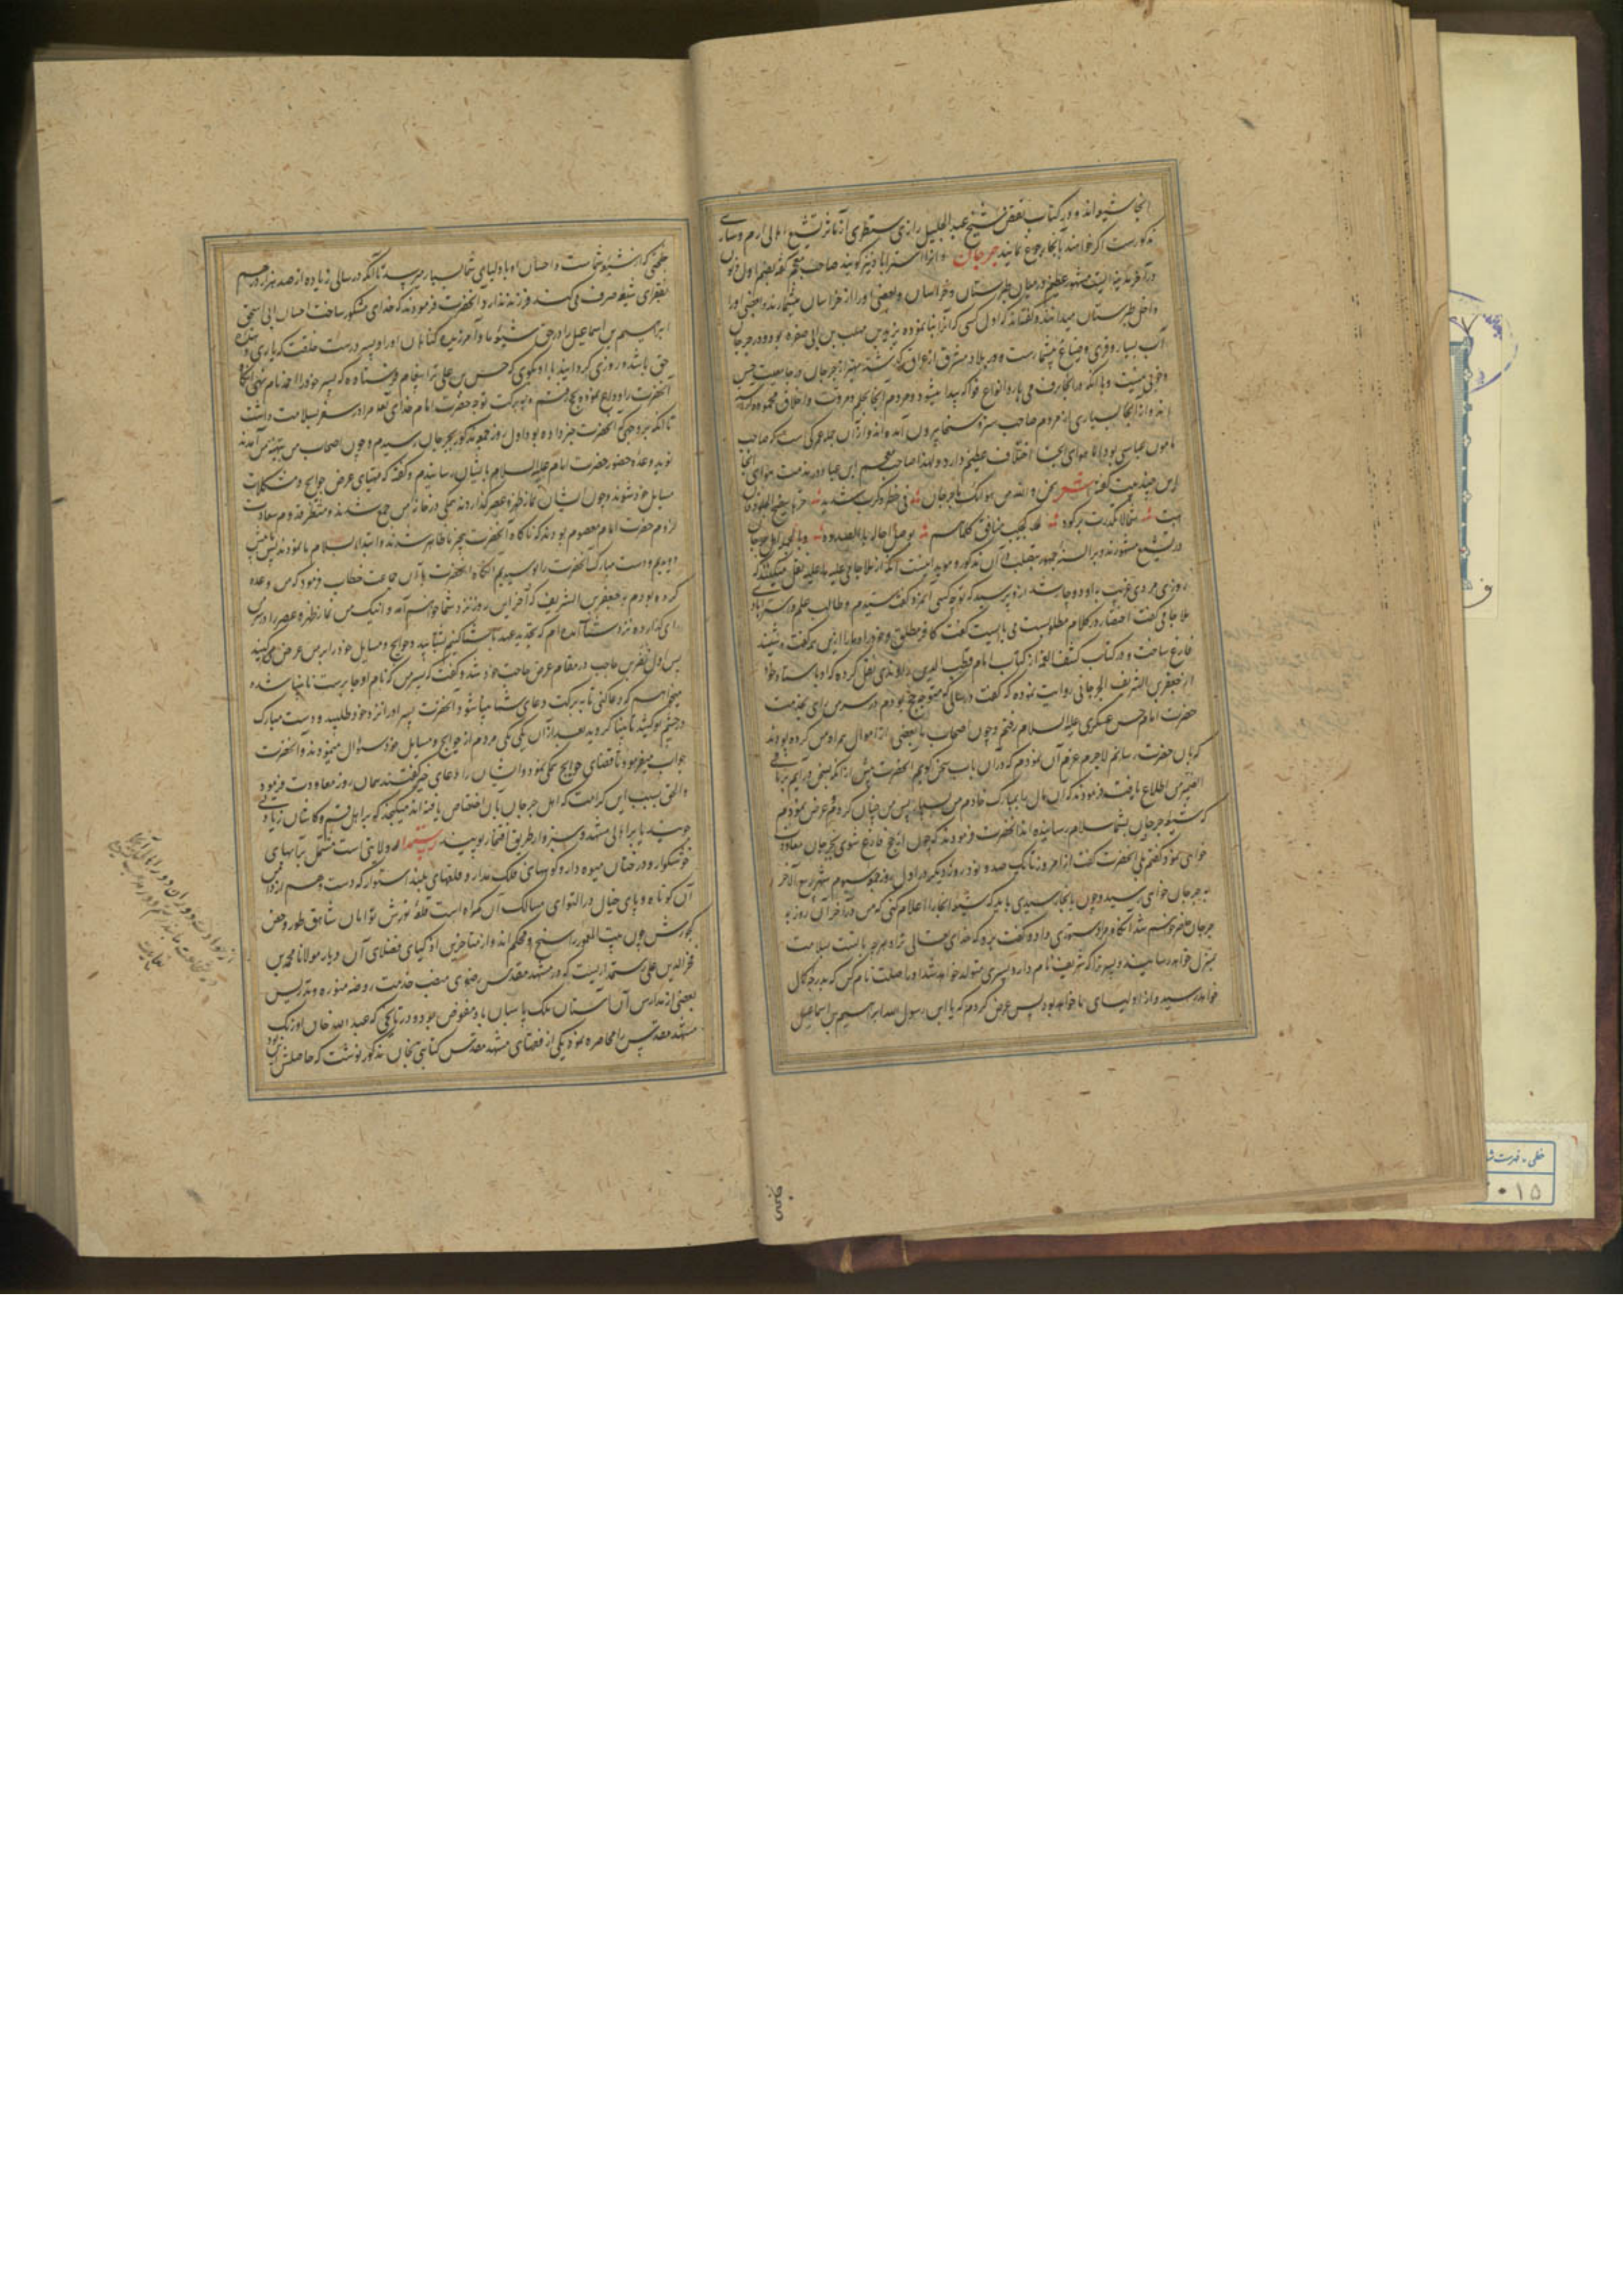 آنجا شیعه‌اند و در کتاب نقض شیخ عبد الجلیل رازی سطری از مآثر تشیع اهالی ارم و ساری
مذکورست اگر خواهند بآنجا رجوع نمایند جرجان و آنرا استراباد نیز گویند صاحب معجم گفته بضم اول و نون
در آخر مدینه ایست مشهور عظیم در میان طبرستان و خراسان و بعضی او را از خراسان میشمارند و بعضی او را
داخل طبرستان میدانند و گفته‌اند که اول کسی که آنرا بنا نموده یزید بن مهلب بن ابی صفره بود و در جرجان
آب بسیار و فری و ضیاع بیشمارست و در بلاد مشرق از عراق که گذشته بهتر از جرجان در جامعیت حسن
و خوبی نیست و با آنکه در آنجا برف می‌بارد و انواع فواکه پیدا میشود و مردم آنجا بحلم و مروت و اخلاق محموده
اند و از آنجا بسیاری از مردم صاحب ستر و سخا بیرون آمده‌اند و از آن جمله عمرکی است که صاحب
مامون عباسی بود اما هوای آنجا اختلاف عظیم دارد و لهذا صاحب معجم این عبا در مذمت هوای آنجا
این چند بیت گفته شعر نحن والله من هوائک یا جرجان فی خطر و کرب شدید حرها ینضج الجلود فان
هبت شمالا تکدرت برکود کحبیب منافق کلما هم بوصل احاله بالصدود و بالجمله اهل جرجان
در تشیع مشهورند و بر السنه جمهور آن مذکور و موید اینست آنکه از ملا جامی نقل میکنند که
روزی مردی غریب باو دوچار شد از وی پرسید که تو چه کسی آنمرد گفت سیدم و طالب علم و استرابادی
ملا جامی گفت اختصار در کلام مطلوبست می‌بایست گفت کافر مطلق و خود را و ما را ازین همه گفت و شنید
فارغ ساخت و در کتاب کشف الغمه از کتاب امام قطب الدین راوندی نقل کرده که او باسناد خود
از جعفر بن الشریف الجرجانی روایت نموده که گفت در سالی که متوجه حج بودم در سر من رای بخدمت
حضرت امام حسن عسکری علیه السلام رفتم و چون اصحاب ما بعضی از اموال همراه من کرده بودند
که بآن حضرت رسانم لاجرم عزم آن نمودم که در آن باب سخن گویم آنحضرت پیش از آنکه سخن درآیم بر ما فی
الضمیر من اطلاع یافت و فرمودند که آن مال را بمبارک خادم من بسپار پس من چنان کردم و عرض نمودم
که شیعه جرجان بشما سلام رسانیده‌اند آنحضرت فرمودند که چون از حج فارغ شوی بجرجان معاودت
خواهی نمود گفتم بلی آنحضرت گفت از امروز تا یک صد و نود روز دیگر در اول روز جمعه سیوم شهر ربیع الآخر
به جرجان خواهی رسید و چون بآنجا رسیدی باید که شیعه آنجا را اعلام کنی که من در آخر آن روز به
جرجان حاضر خواهم شد آنگاه مرا دستوری داد و گفت برو که خدای تعالی ترا و هر چه با تست بسلامت
بمنزل خواهد رسانید و پسر ترا که شریف نام دارد پسری متولد خواهد شد او را صلت نام کن که بدرجه کمال
خواهد رسید و از اولیای ما خواهد بود پس عرض کردم که یا ابن رسول الله ابراهیم بن اسماعیل
خلجی که از شیعه شماست و احسان او باولیای شما بسیار میرسد تا آنکه در سالی زیاده از صد هزار درهم
بفقرای شیعه صرف می‌کند فرزند ندارد آنحضرت فرمودند که خدای مشکور ساخت احسان ابی اسحق
ابراهیم بن اسماعیل را در حق شیعه ما و آمرزیده گناهان او را و پسر درست خلقت که یاری دهنده
حق باشد روزی گردانید با او بگوی که حسن بن علی ترا پیغام فرستاده که پسر خود را احمد نام نهی آنگاه
آنحضرت را وداع نموده بحج رفتم و به برکت توجه حضرت امام خدای تعالی مرا در سفر بسلامت داشت
تا آنکه بر وجهی که آنحضرت خبر داده بود اول روز جمعه مذکور بجرجان رسیدم و چون اصحاب من بتهنیت من آمدند
نوید وعده حضور حضرت امام علیه السلام بایشان رسانیدم و گفتم که مهیای عرض حوایج و مشکلات
مسایل خود شوند و چون ایشان نماز ظهر و عصر گذاردند همگی در خانه من جمع شدند و منتظر قدوم سعادت
لزوم حضرت امام معصوم بودند که ناگاه آنحضرت بیخبر ظاهر شدند و ابتدا بسلام ما نمودند پس ما پیش
دویدیم و دست مبارک آنحضرت را بوسیدیم آنگاه آنحضرت با آن جماعت خطاب فرمود که من وعده
کرده بودم به جعفر بن الشریف که آخر این روز نزد شما خواهم آمد و اینک من نماز ظهر و عصر را در سر من
رای گذارده نزد شما آمده‌ام که تجدید عهد با شما کنم بشتابید و حوایج و مسایل خود را بر من عرض کنید
پس اول نضر بن جابر در مقام عرض حاجت خود شد و گفت که پسر من که نام او جابرست نابینا شده
میخواهم که دعا کنی تا به برکت دعای شما بینا شود آنحضرت پسر او را نزد خود طلبید و دست مبارک
در چشم او کشید تا بینا گردید بعد از آن یکی یکی مردم از حوایج و مسایل خود سؤال مینمودند و آنحضرت
جواب میفرمود تا قضای حوایج همگی نمود و ایشان را دعای خیر گفتند و همان روز معاودت فرمود
والحق بسبب این کرامت که اهل جرجان بآن اختصاص یافته‌اند میگنجد که بر اهل قم و کاشان زیادتی
جویند یا بر اهالی مشهد و سبزوار طریق افتخار پویند رستمدار ولایتی است مشتمل بر آبهای
خوشگوار و درختان میوه دار و کوههای فلک مدار و قلعهای بلند استوار که دست وهم از دامن
آن کوتاه و پای خیال در التوای مسالک آن گمراه است قلعه نورش تؤامان شاهق طور و حصن
کجورش چون بیت المعمور راسخ و محکم‌اند و از متاخرین اذکیای فضلای آن دیار مولانا محمد بن
فخر الدین علی رستمداریست که در مشهد مقدس رضوی منصب خدمت روضه منوره و تدریس
بعضی از مدارس آن آستان ملک پاسبان باو مفوض بود و در تاریخی که عبد الله خان اوزبک
مشهد مقدس را محاصره نمود یکی از فقهای مشهد مقدس کتابتی بخان مذکور نوشت که حاصلش این بود
۰۱۵